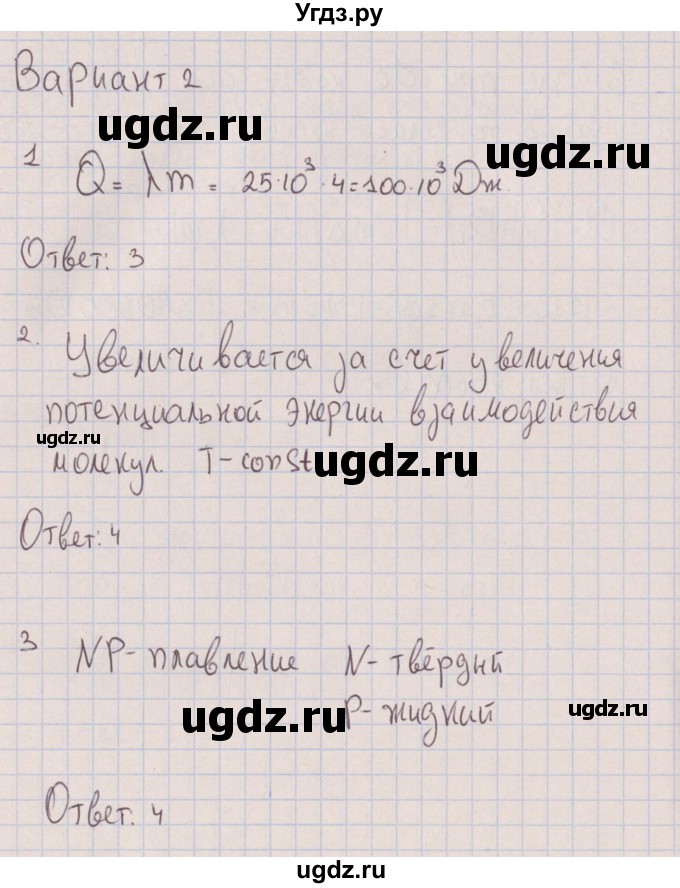 Угдз.ру
Вариант 2
ugdz.ru
ugdz.ru
1 Q = λm = 25·10³·4=100·10³ Дж.
Ответ: 3
2. Увеличивается за счет увеличения
потенциальной энергии взаимодействия
ugdz.ru
молекул. T-const
ugdz.ru
Ответ: 4
3 NP- плавление N- твёрдый
ugdz.ru
P- жидкий
ugdz.ru
Ответ. 4
ugdz.ru